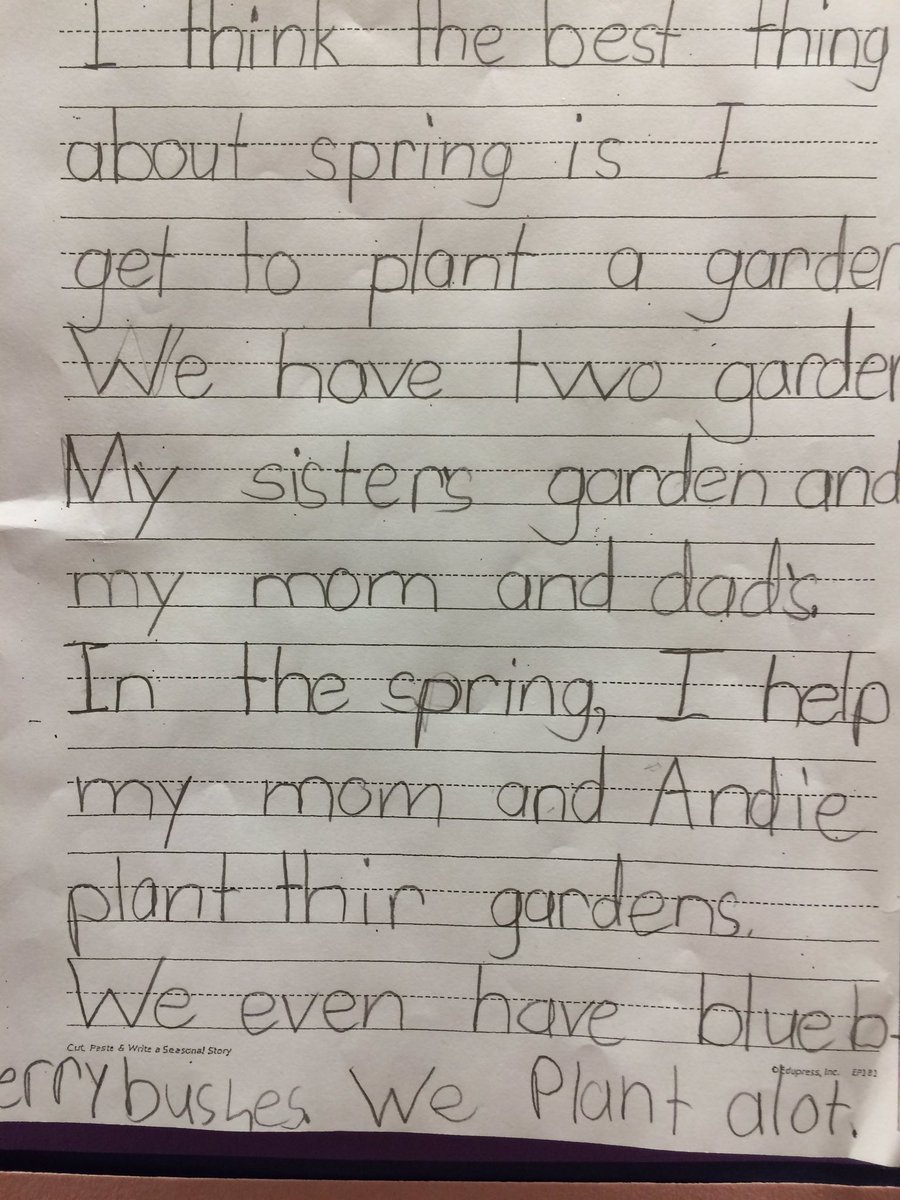 I think the best thing
about spring is I
get to plant a garden
We have two garden
My sister's garden and
my mom and dad's.
In the spring, I help
my mom and Andie
plant thir gardens.
We even have blueb-
Cut, Paste & Write a Seasonal Story
©Edupress, Inc. EP181
erry bushes. We Plant alot.